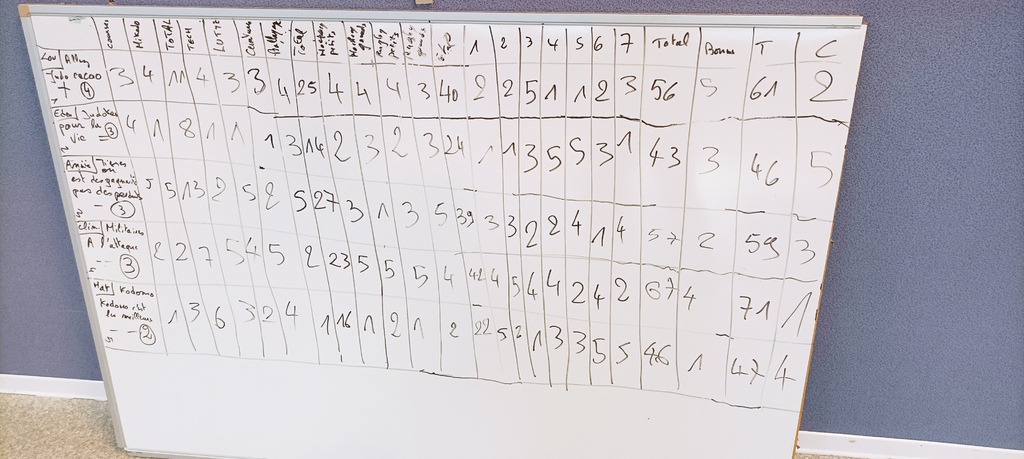 courses Mikado TOTAL TECH LUTTE Ceinture Total Hockey petits Hockey grands Rugby petits Rugby grands 1 2 3 4 5 6 7 Total Bonus T C
Lou
Judo racoo
+ 4
3 4 11 4 3 3 4 25 4 4 4 3 40 2 2 5 1 1 2 3 56 5 61 2
Judokas
pour la 3
vie =
4 1 8 1 1 1 3 14 2 3 2 3 24 1 1 3 5 5 3 1 43 3 46 5
on
est des gagnants
pas des perdants
- 3
5 5 13 2 5 2 5 27 3 1 3 5 39 3 3 2 2 4 1 4 57 2 59 3
Militaires
A l'attaque
-- 3
2 2 7 5 4 5 2 23 5 5 5 4 42 4 5 4 4 2 4 2 67 4 71 1
Mat Kodomo
Kodomo c'est
les meilleurs
-- 2
1 3 6 3 2 4 1 16 1 2 1 2 22 5 2 1 3 3 5 5 46 1 47 4